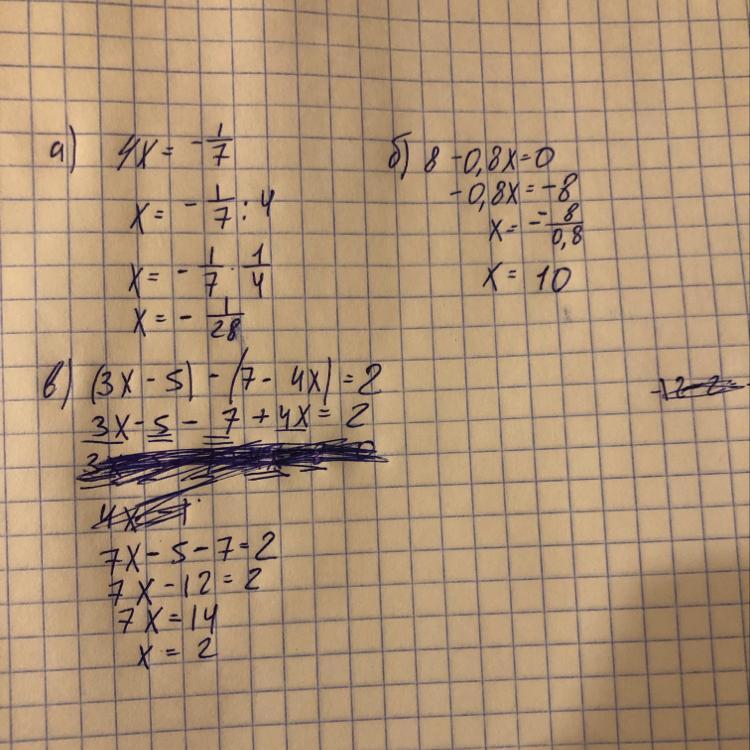 а) 4x = -1/7
x = -1/7 : 4
x = -1/7 · 1/4
x = -1/28
б) 8 - 0,8x = 0
-0,8x = -8
x = - -8/0,8
x = 10
в) (3x - 5) - (7 - 4x) = 2
3x - 5 - 7 + 4x = 2
7x - 5 - 7 = 2
7x - 12 = 2
7x = 14
x = 2